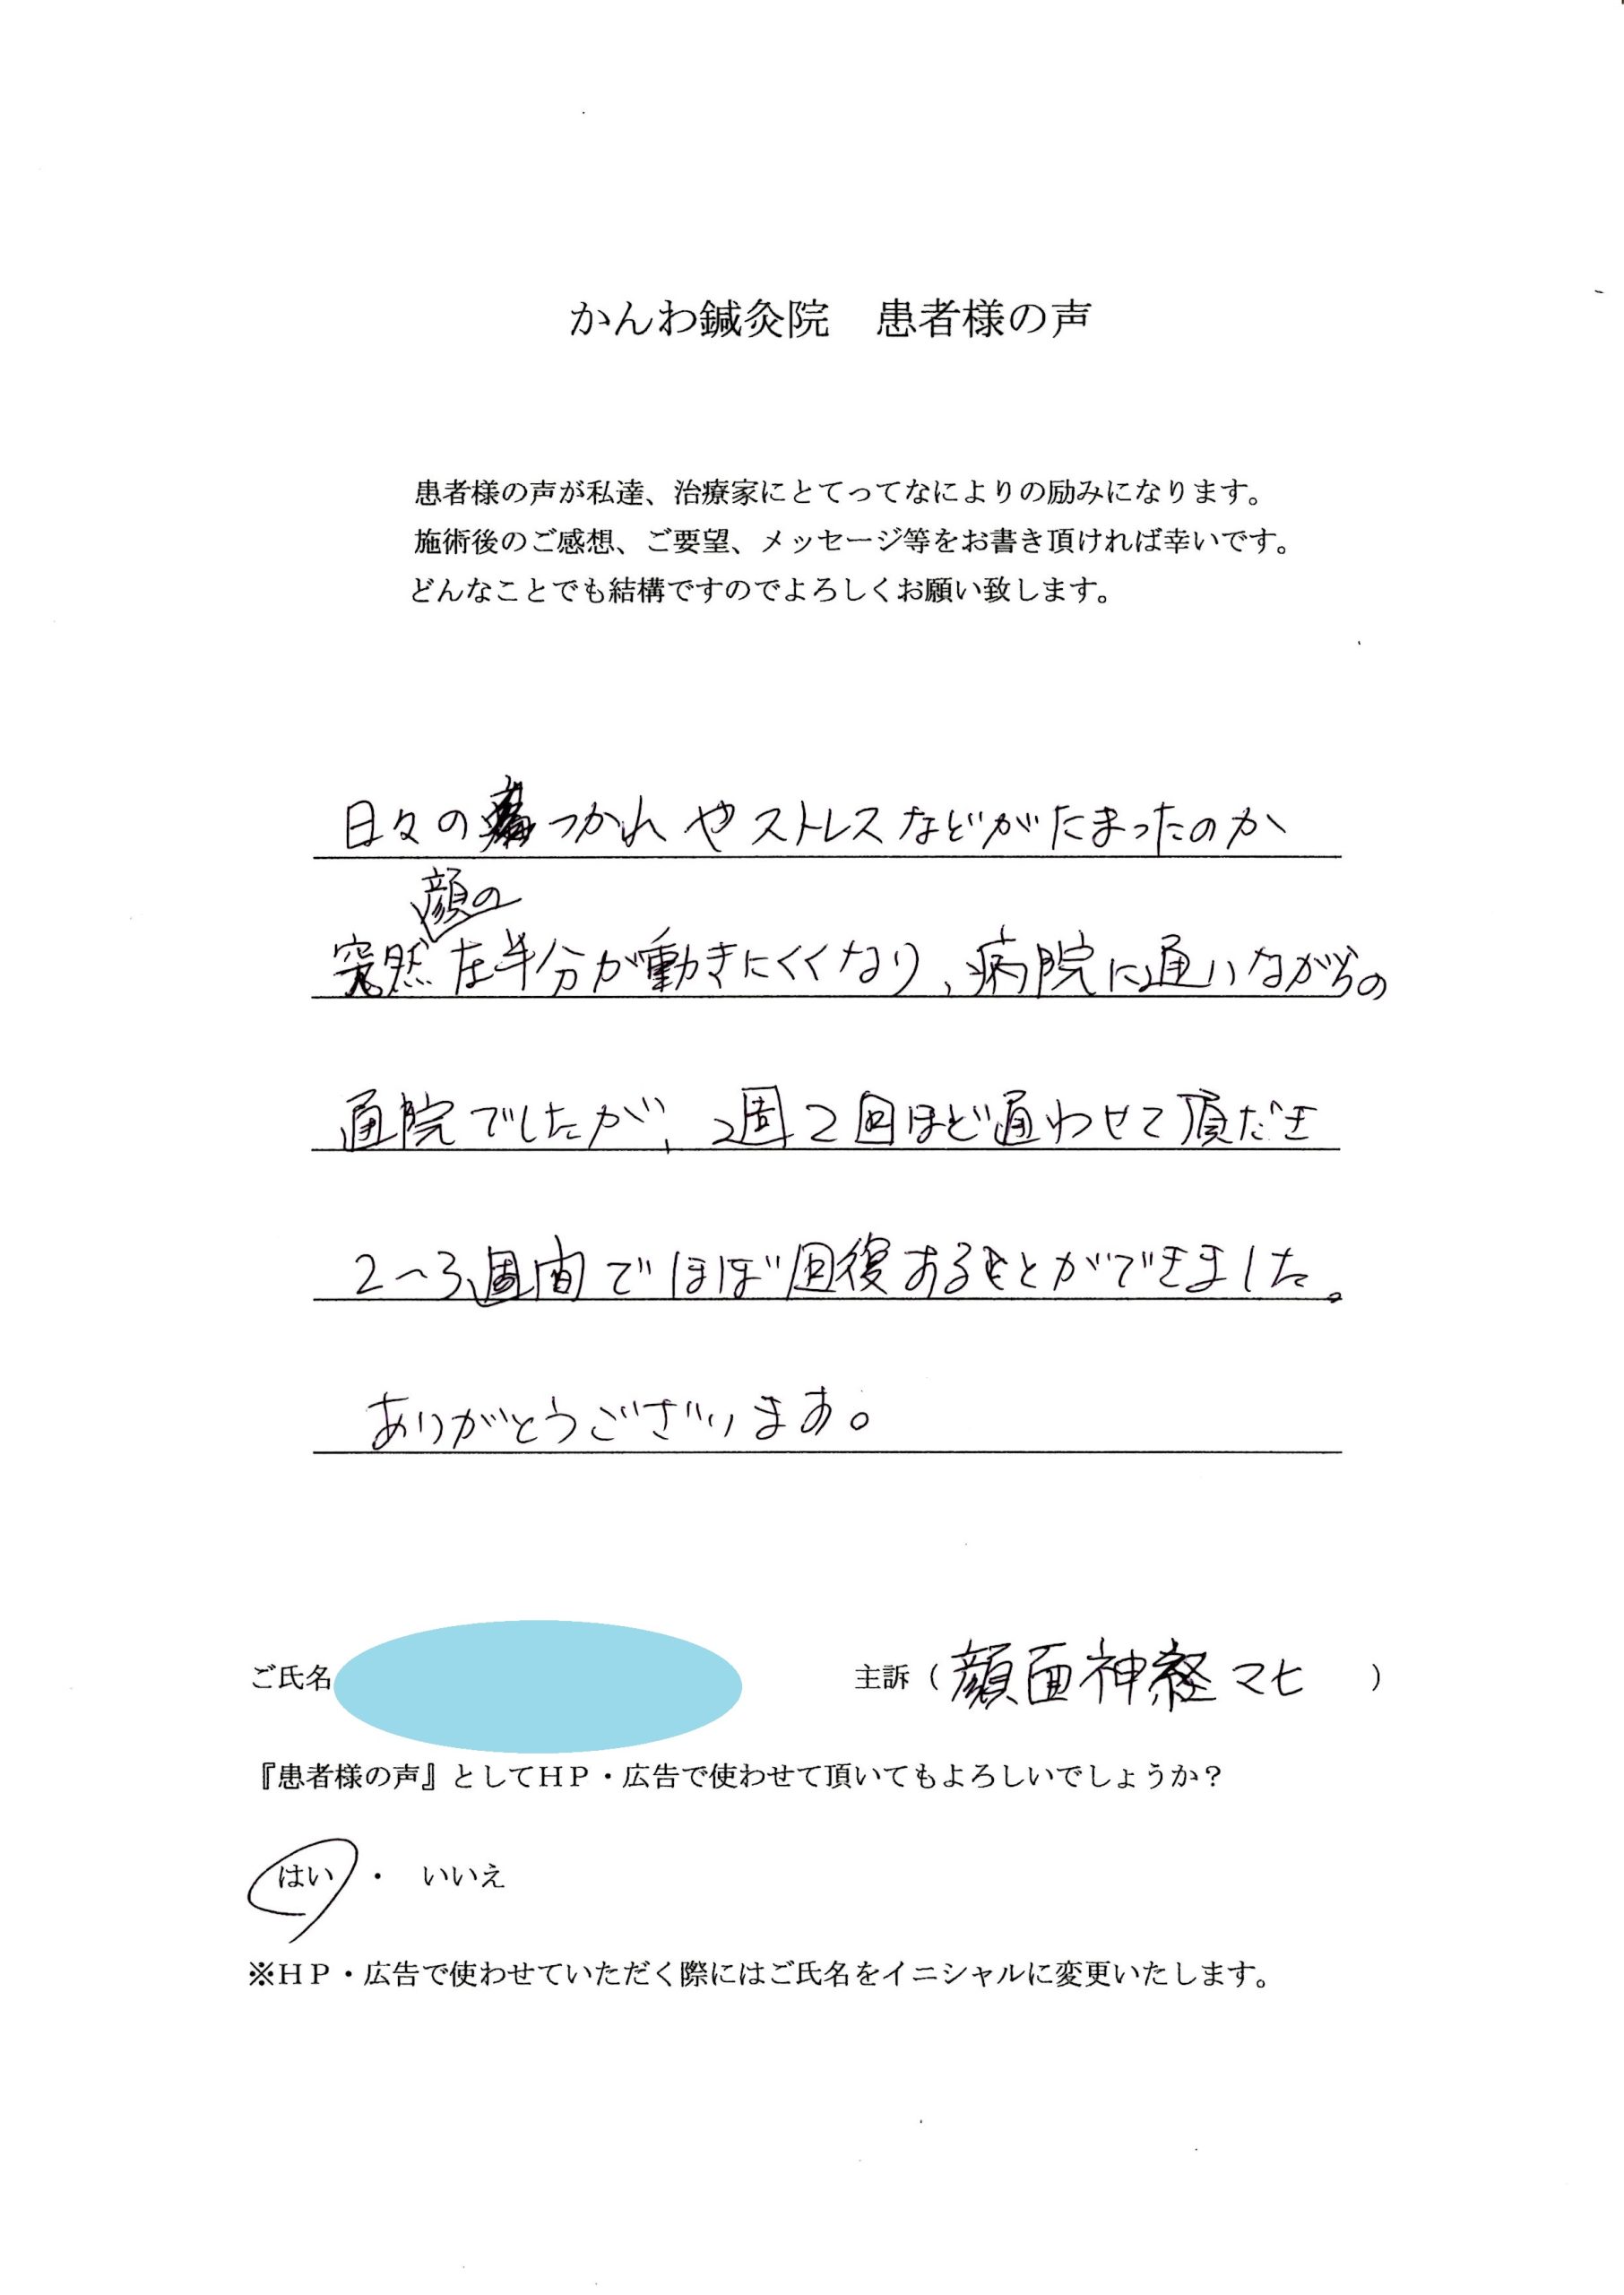 かんわ鍼灸院　患者様の声
患者様の声が私達、治療家にとてってなによりの励みになります。
施術後のご感想、ご要望、メッセージ等をお書き頂ければ幸いです。
どんなことでも結構ですのでよろしくお願い致します。
日々のつかれやストレスなどがたまったのか
突然顔の左半分が動きにくくなり、病院に通いながらの
通院でしたが、週2回ほど通わせて頂だき
2〜3週間でほぼ回復することができました。
ありがとうございます。
ご氏名　主訴（顔面神経マヒ）
『患者様の声』としてＨＰ・広告で使わせて頂いてもよろしいでしょうか？
はい・　いいえ
※ＨＰ・広告で使わせていただく際にはご氏名をイニシャルに変更いたします。